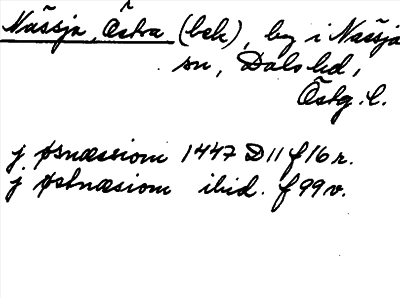 Nässja, Östra (bsk), by i Nässja
sn, Dals hd,
Östg. l.
j øsnæssiom 1447 D 11 f 16 r.
j østnæsiom ibid. f 99 v.